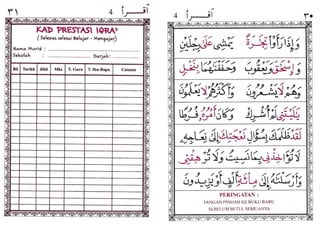 ٣١
4 اقرأ
KAD PRESTASI IQRA'
( Selepas selesai Belajar - Mengajar)
Nama Murid :
Sekolah : Darjah:
Bil Tarikh Jilid M/s T. Guru T. Ibu/Bapa Catatan
4 اقرأ
٣٠
وَإِذَا رَأَوْا تِجَارَةً يَمْشِى عَلَى رِجْلَيْنِ
وَإِسْحٰقَ وَيَعْقُوبَ
وَهُمْ لَا يَشْعُرُونَ وَأَكْثَرُهُمْ لَا يَعْلَمُونَ
وَكَانَ أَمْرُهُ فُرُطًا
لَقَدْ ظَلَمَكَ بِسُؤَالِ نَعْجَتِكَ إِلَىٰ نِعَاجِهِ
لَا تُؤَاخِذْنِى بِمَا نَسِيتُ وَلَا تُرْهِقْنِى
وَأَرْسَلْنَاهُ إِلَىٰ مِائَةِ أَلْفٍ أَوْ يَزِيدُونَ
PERINGATAN :
JANGAN PINDAH KE BUKU BARU
SEBELUM BETUL SEMUANYA